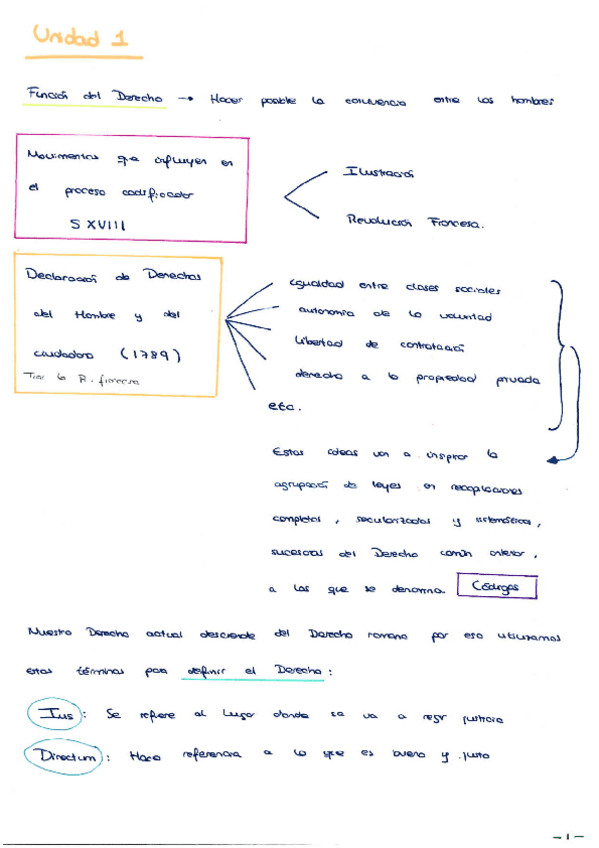 Unidad 1
Función del Derecho → Hacer posible la convivencia entre los hombres
Movimientos que influyen en
el proceso codificador
S XVIII
Ilustración
Revolución Francesa.
Declaración de Derechos
del Hombre y del
ciudadano (1789)
Tras la R. francesa
igualdad entre clases sociales
autonomía de la voluntad
libertad de contratación
derecho a la propiedad privada
etc.
Estas ideas van a inspirar la
agrupación de leyes en recopilaciones
completas, secularizadas y sistemáticas,
sucesoras del Derecho común anterior,
a las que se denomina. Códigos
Nuestro Derecho actual desciende del Derecho romano por eso utilizamos
estos términos para definir el Derecho:
Ius: Se refiere al lugar donde se va a regir justicia
Directum: Hace referencia a lo que es bueno y justo
- 1 -